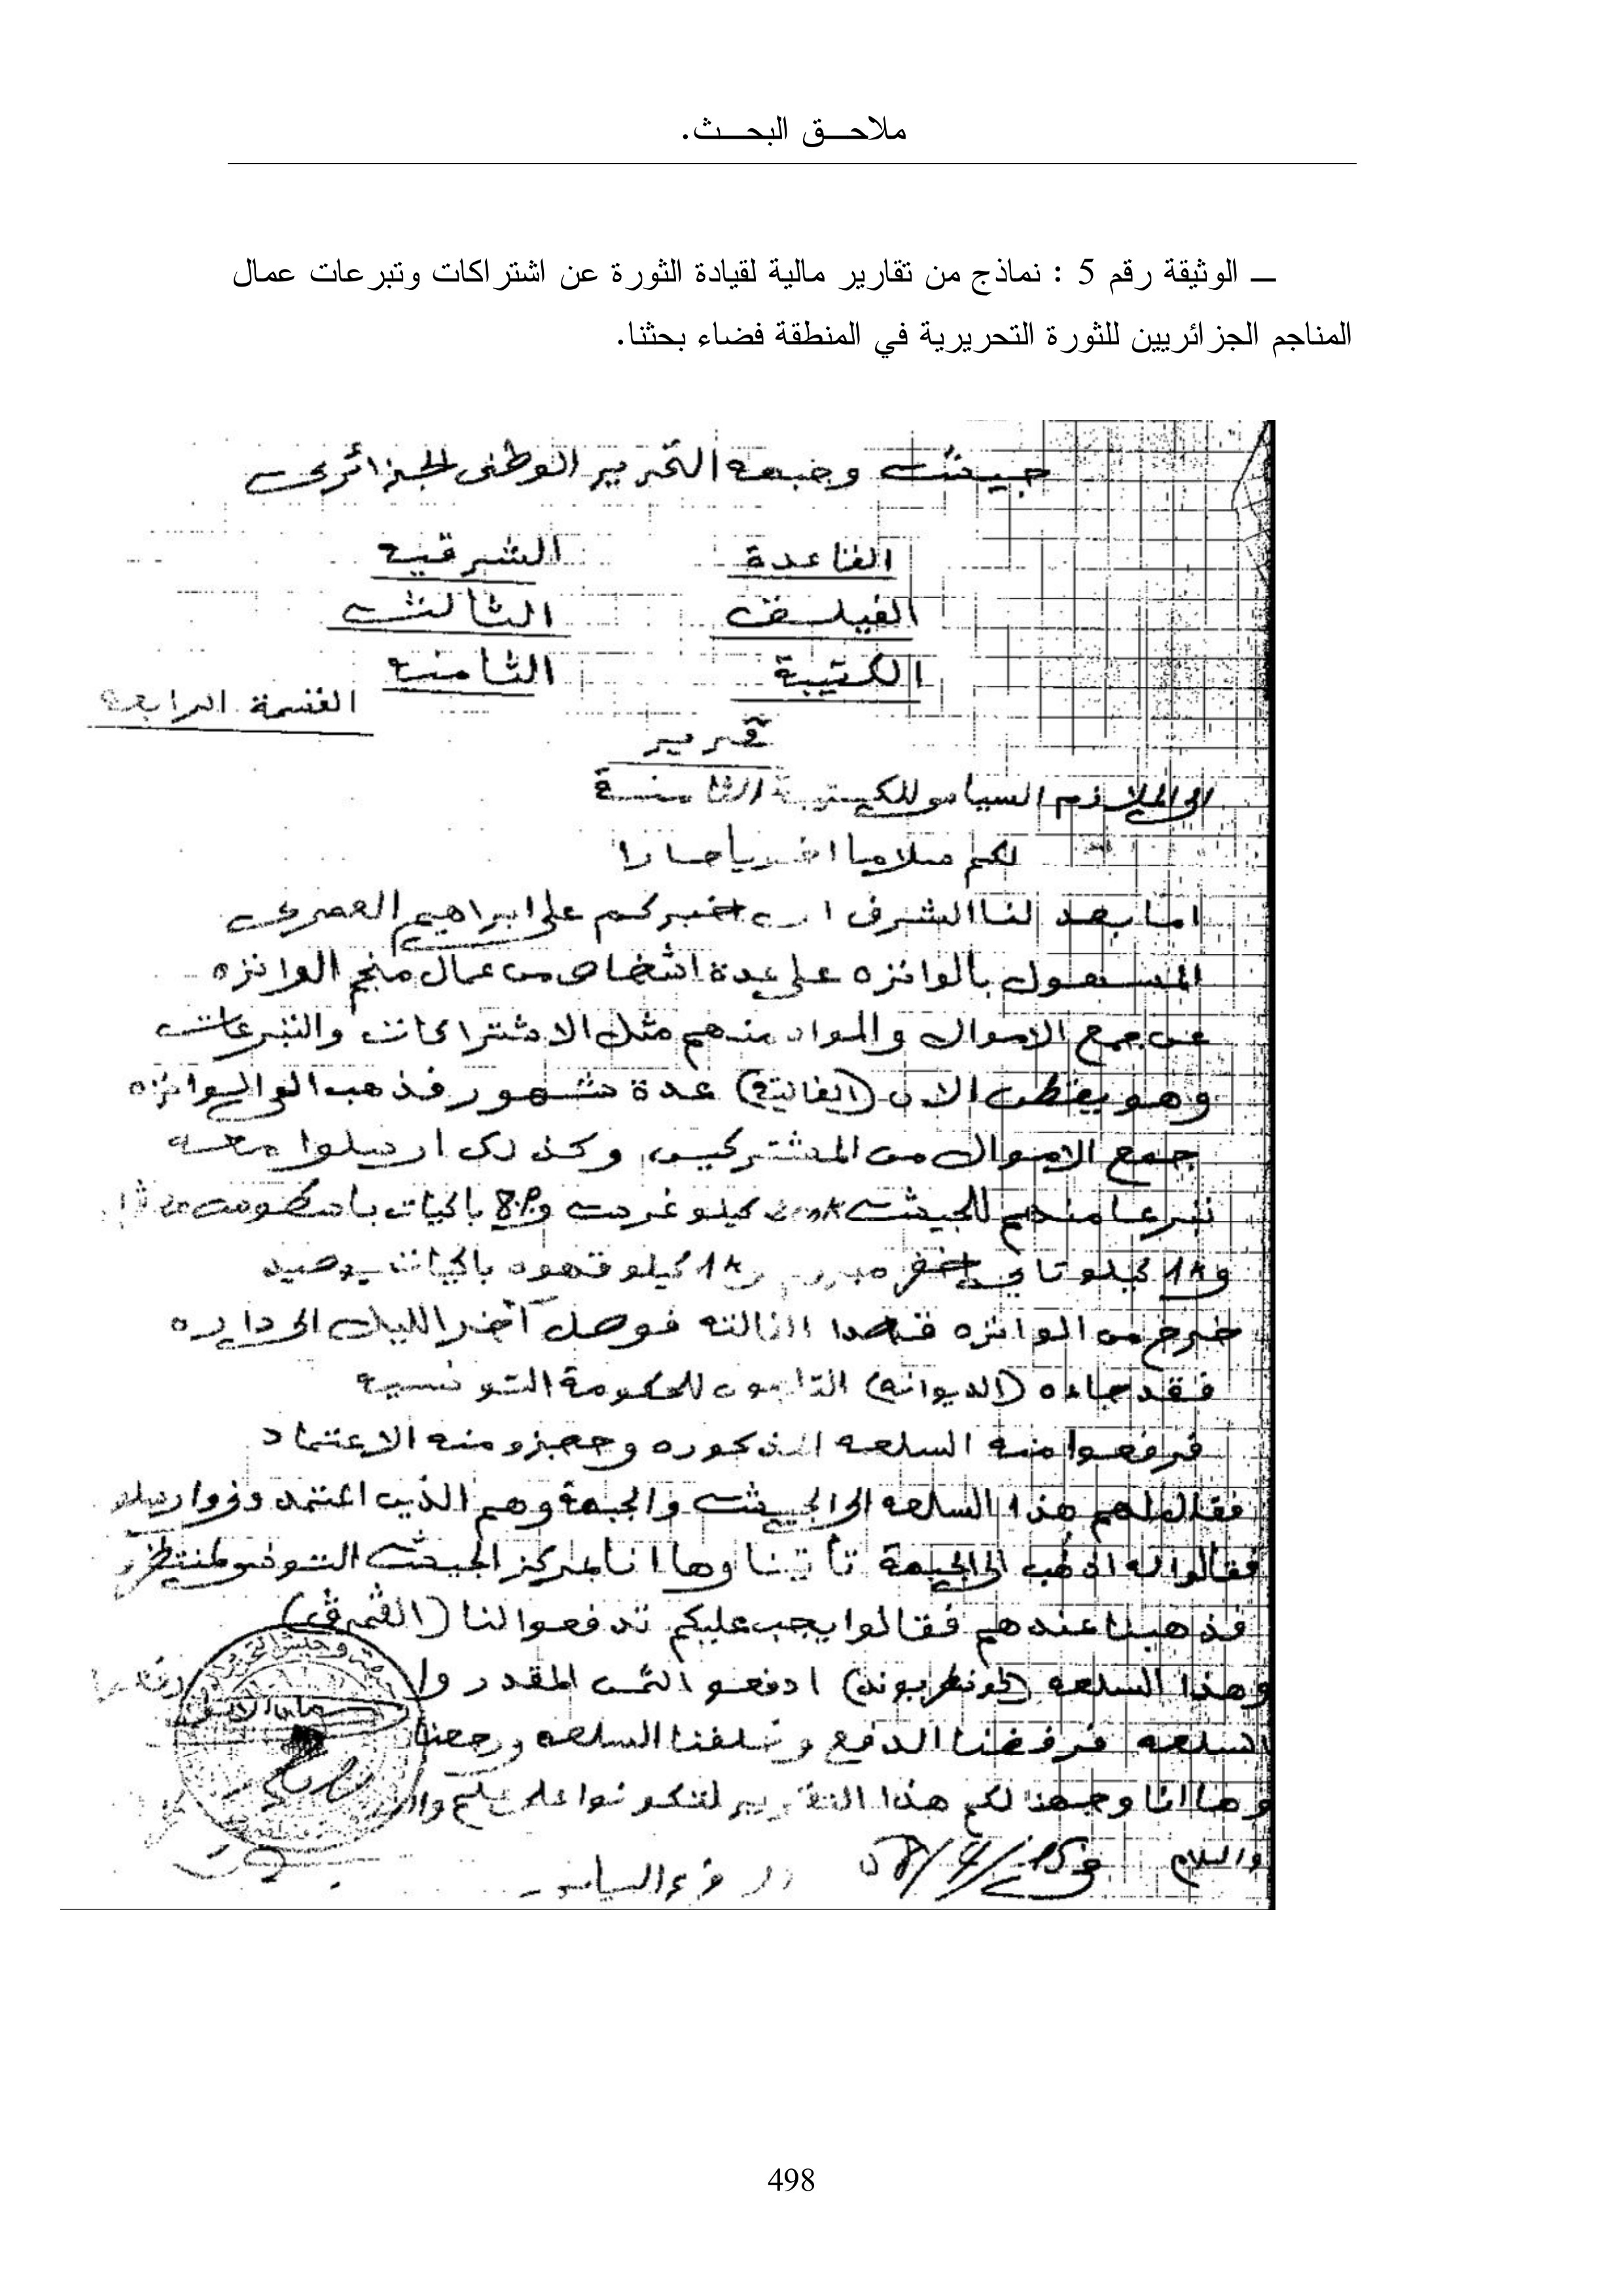 ملاحـــق البحـــث.
ـــ الوثيقة رقم 5 : نماذج من تقارير مالية لقيادة الثورة عن اشتراكات وتبرعات عمال
المناجم الجزائريين للثورة التحريرية في المنطقة فضاء بحثنا.
جيش وجبهه التحرير الوطنى الجزائرى
القاعدة الشرقيه
الفيلق الثالث
الكتيبة الثامنه
القسمة الرابعه
تقرير
الى الملازم السياسى للكيتوبة الثامنة
لكم سلاما اخويا حارا
اما بعد لنا الشرف ان اخبركم على ابراهيم العمرى
المسئول بالوانزه على عدة اشخاص من عمال منجم الوانزه
عن جمع الاموال والمواد منهم مثل الاشتراكات والتبرعات
وهو يقطن الان عدة شهور فذهب الى الوانزه
جمع الاموال من المشتركين وكذلك ارسلوا معه
تبرعا منهم للجيش كيلو غرس و باكيات باسكويت
و كيلو تاي اخضر و كيلو قهوه باكيات
خرج من الوانزه قاصدا الثالثه فوصل آخر الليل الى دايره
فقد جاءه (الديوانه) التابعون للحكومة التونسيه
فرفعوا منه السلعه المذكوره وحجزو منه الاعتماد
فقال لهم هذا السلعه الى الجيش والجبهة وهم الذين
فقالوا له اذهب الى الجبهة تأتينا وها انا بمركز الجيش التونسى
فذهبنا عندهم فقالوا يجب عليكم تدفعوا لنا
وهذا السلعه ادفعو الثمن المقدر وا
السلعه فرفضنا الدفع وخلفنا السلعه ورجعنا
وها انا وجهنا لكم هذا التقرير لتكونوا على علم
والسلام فى 15/4/58
السياسى
498